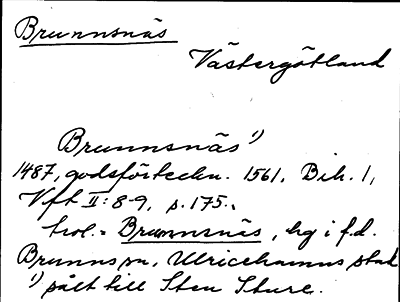 Brunnsnäs
Västergötland
Brunnsnäs¹)
1487, godsförteckn. 1561. Bih. 1,
Vft II:8-9, s.175.
trol. = Brunnsnäs, hg i f.d.
Brunns sn, Ulricehamns stad
¹) sålt till Sten Sture.